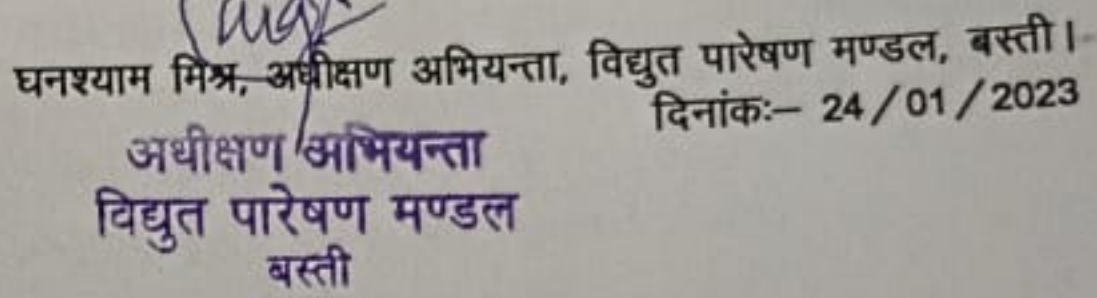 घनश्याम मिश्र, अधीक्षण अभियन्ता, विद्युत पारेषण मण्डल, बस्ती।
दिनांकः– 24/01/2023
अधीक्षण अभियन्ता
विद्युत पारेषण मण्डल
बस्ती